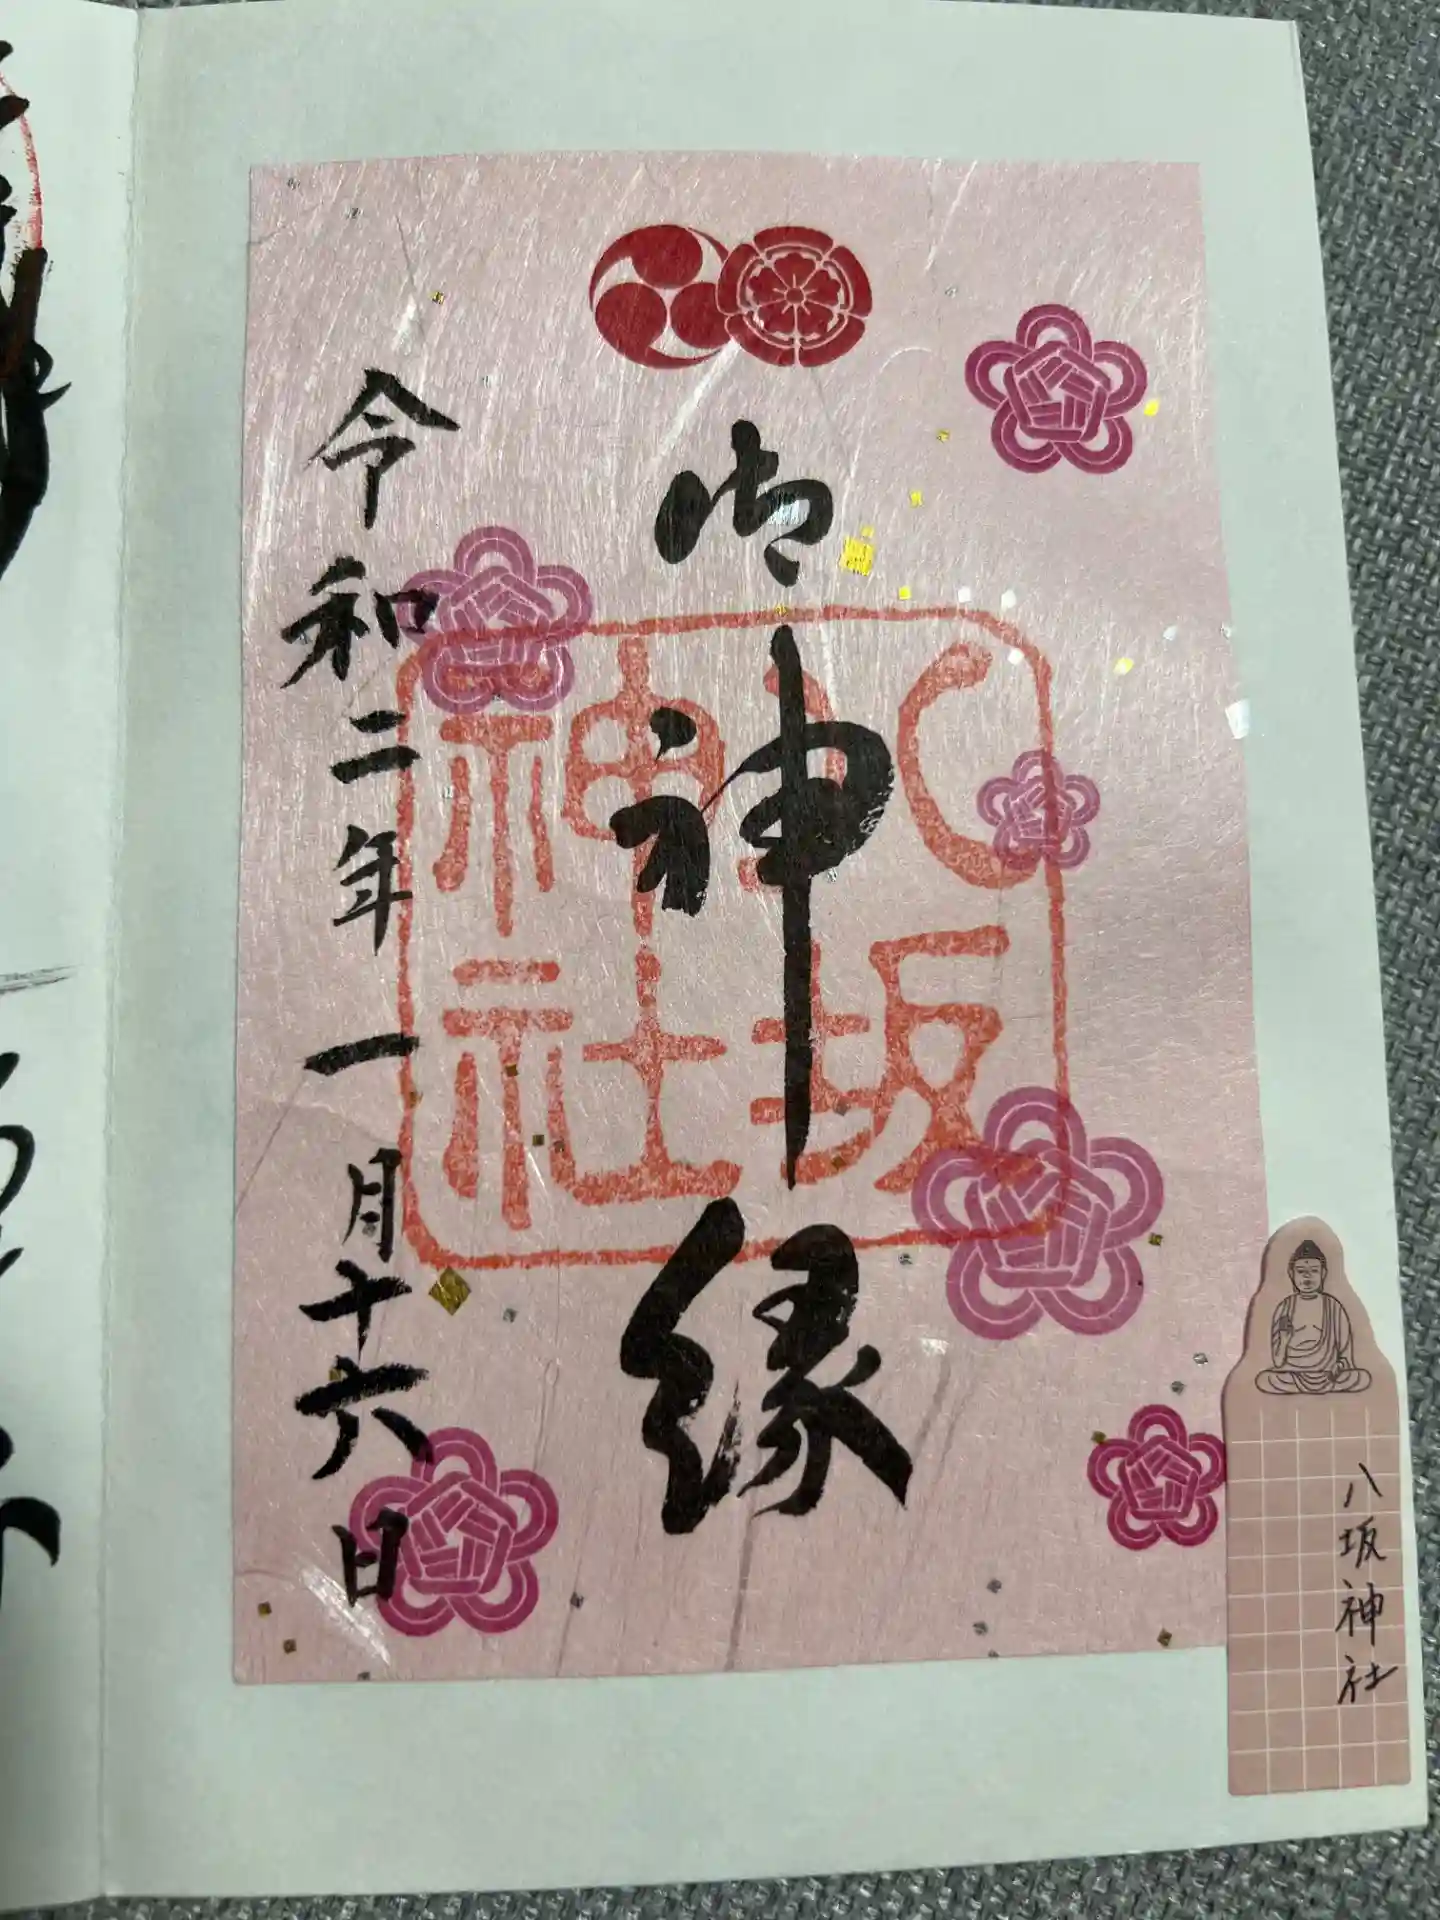 御神縁
八坂
神社
令和二年一月十六日
八坂神社